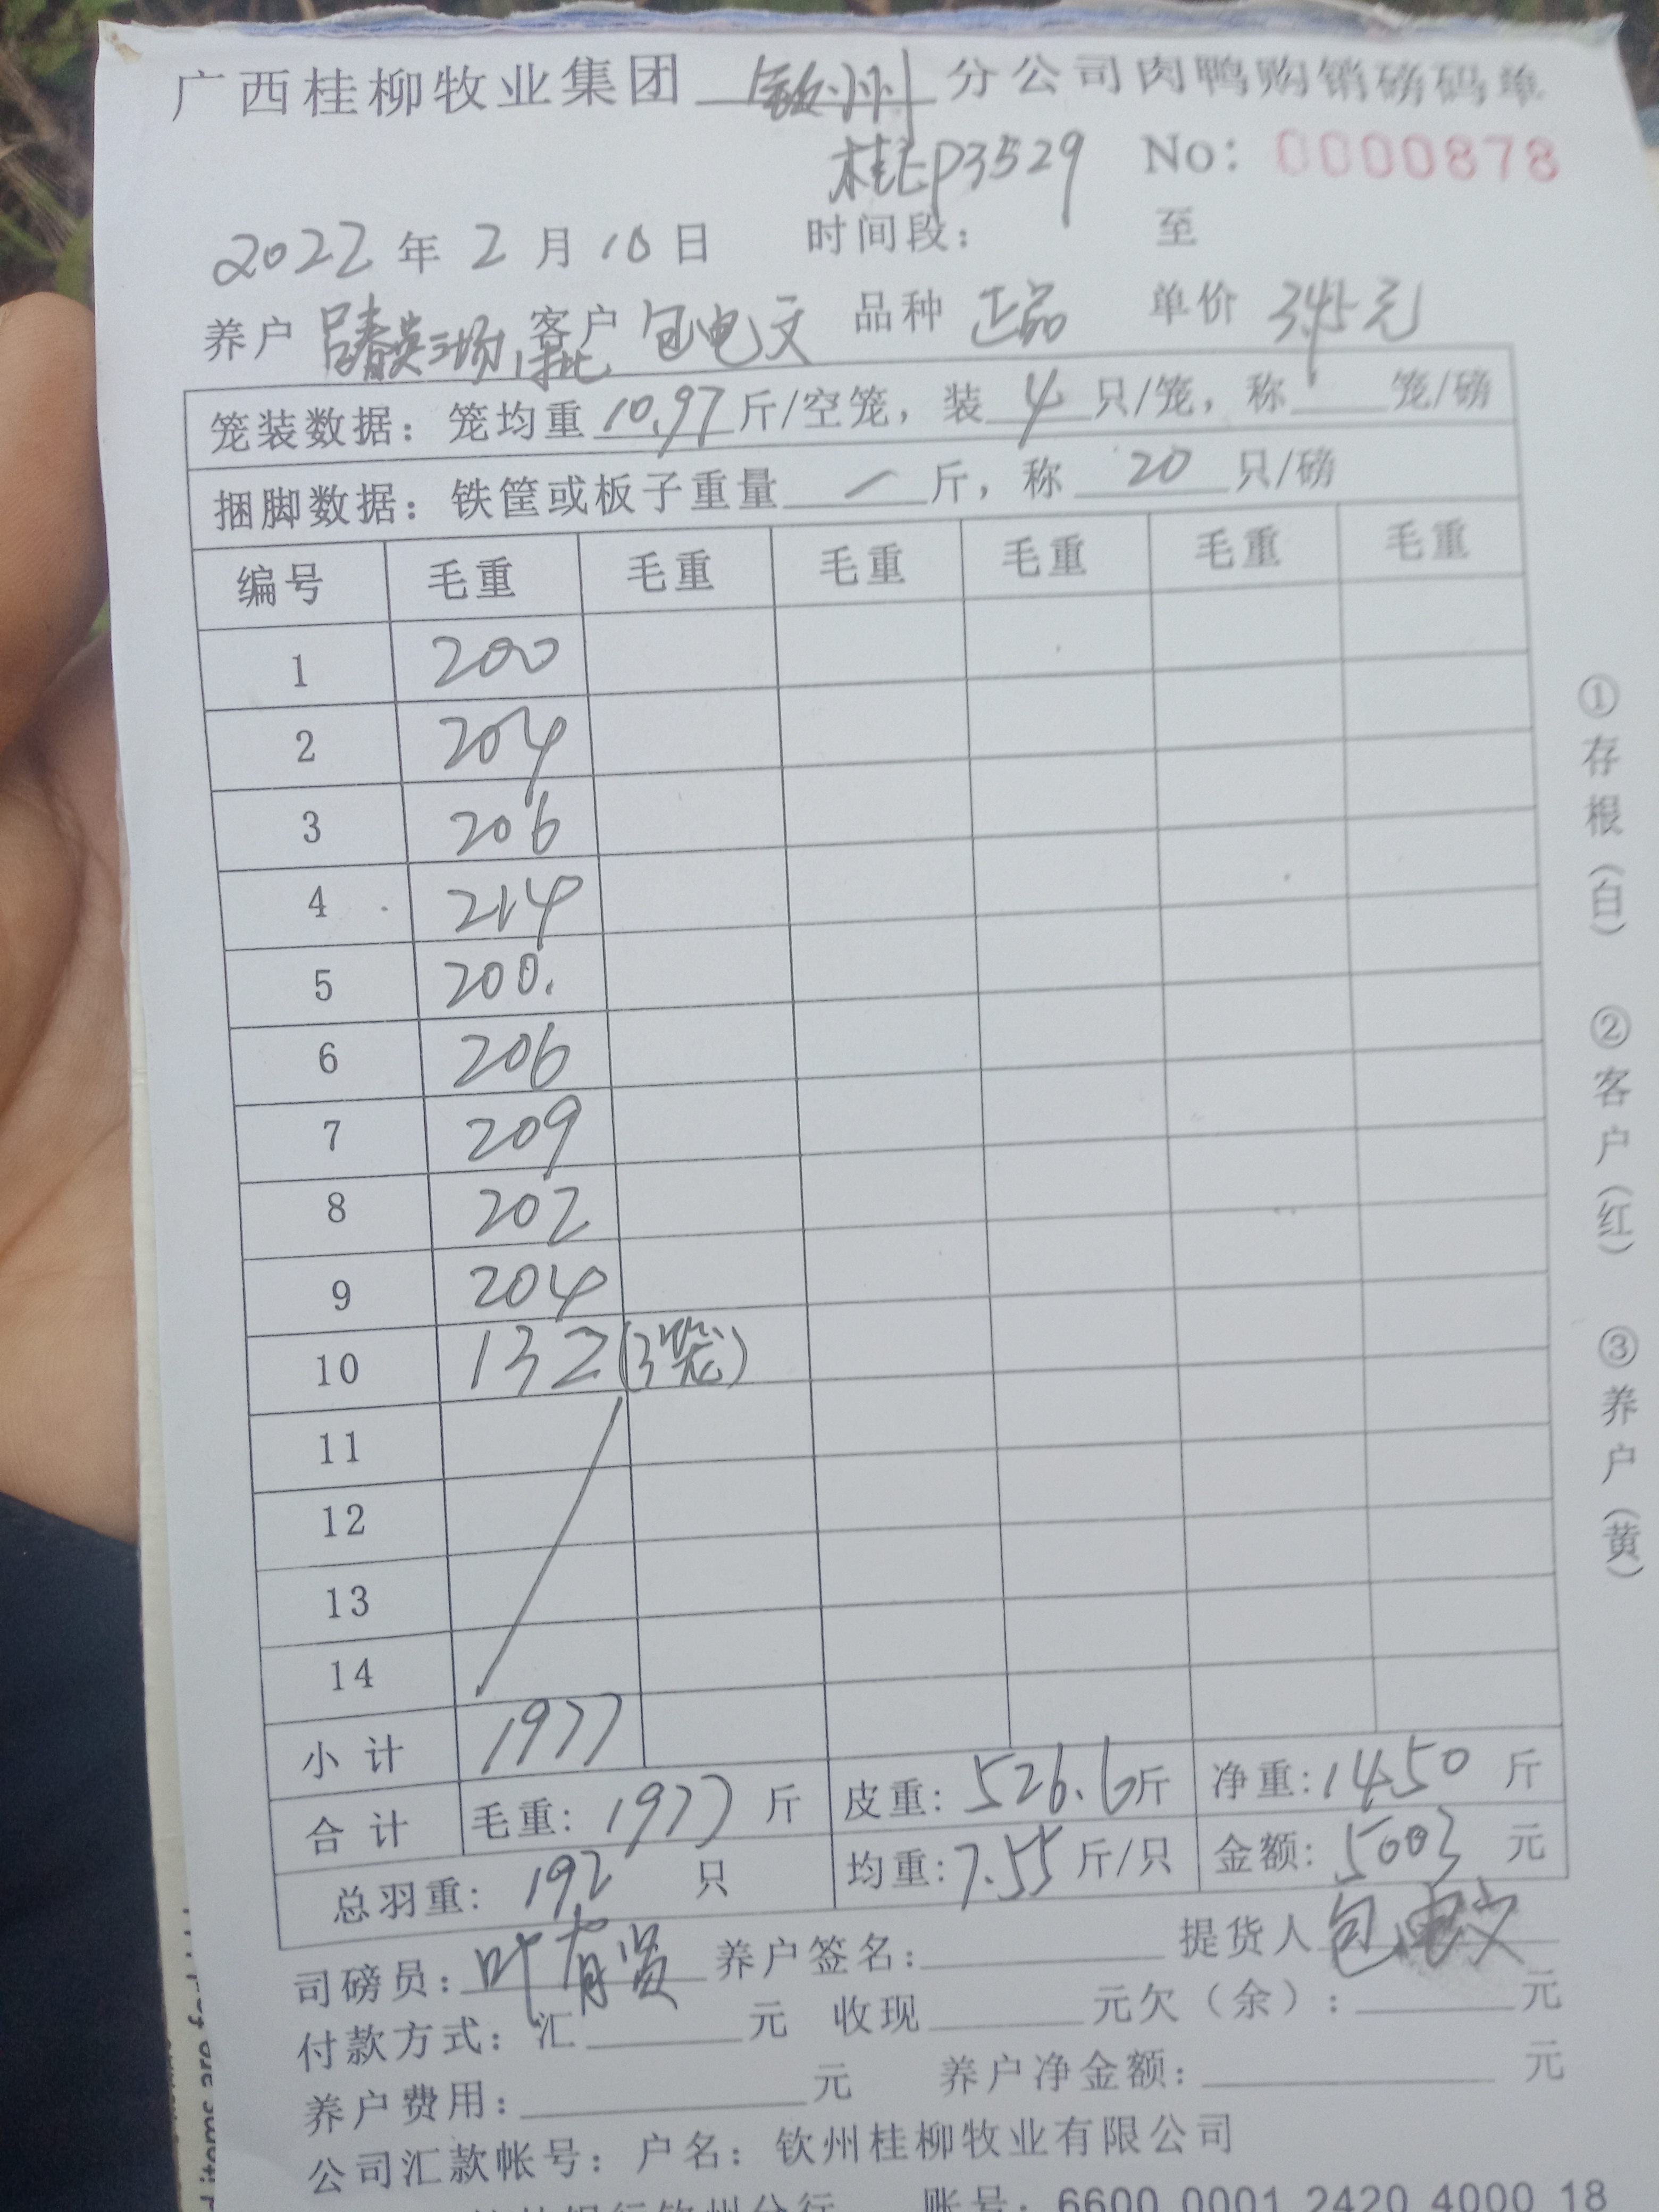 广西桂柳牧业集团 钦州 分公司肉鸭购销磅码单
桂P3529 No: 0000878
2022 年 2 月 10 日 时间段: 至
养户 吕春英三场1批 客户 包电文 品种 正品 单价 3.45元
笼装数据: 笼均重 10.97 斤/空笼, 装 4 只/笼, 称 笼/磅
捆脚数据: 铁筐或板子重量 / 斤, 称 20 只/磅
编号 毛重 毛重 毛重 毛重 毛重 毛重
1 200
2 204
3 206
4 214
5 200.
6 206
7 209
8 202
9 204
10 132(3笼)
11
12
13
14
小计 1977
合计 毛重: 1977 斤 皮重: 526.6斤 净重: 1450 斤
总羽重: 192 只 均重: 7.55 斤/只 金额: 5003 元
司磅员: 叶有贤 养户签名: 提货人 包电文
付款方式: 汇 元 收现 元欠(余): 元
养户费用: 元 养户净金额: 元
公司汇款帐号: 户名: 钦州桂柳牧业有限公司
银行钦州分行 账号: 6600 0001 2420 4000 18
①存根(白) ②客户(红) ③养户(黄)